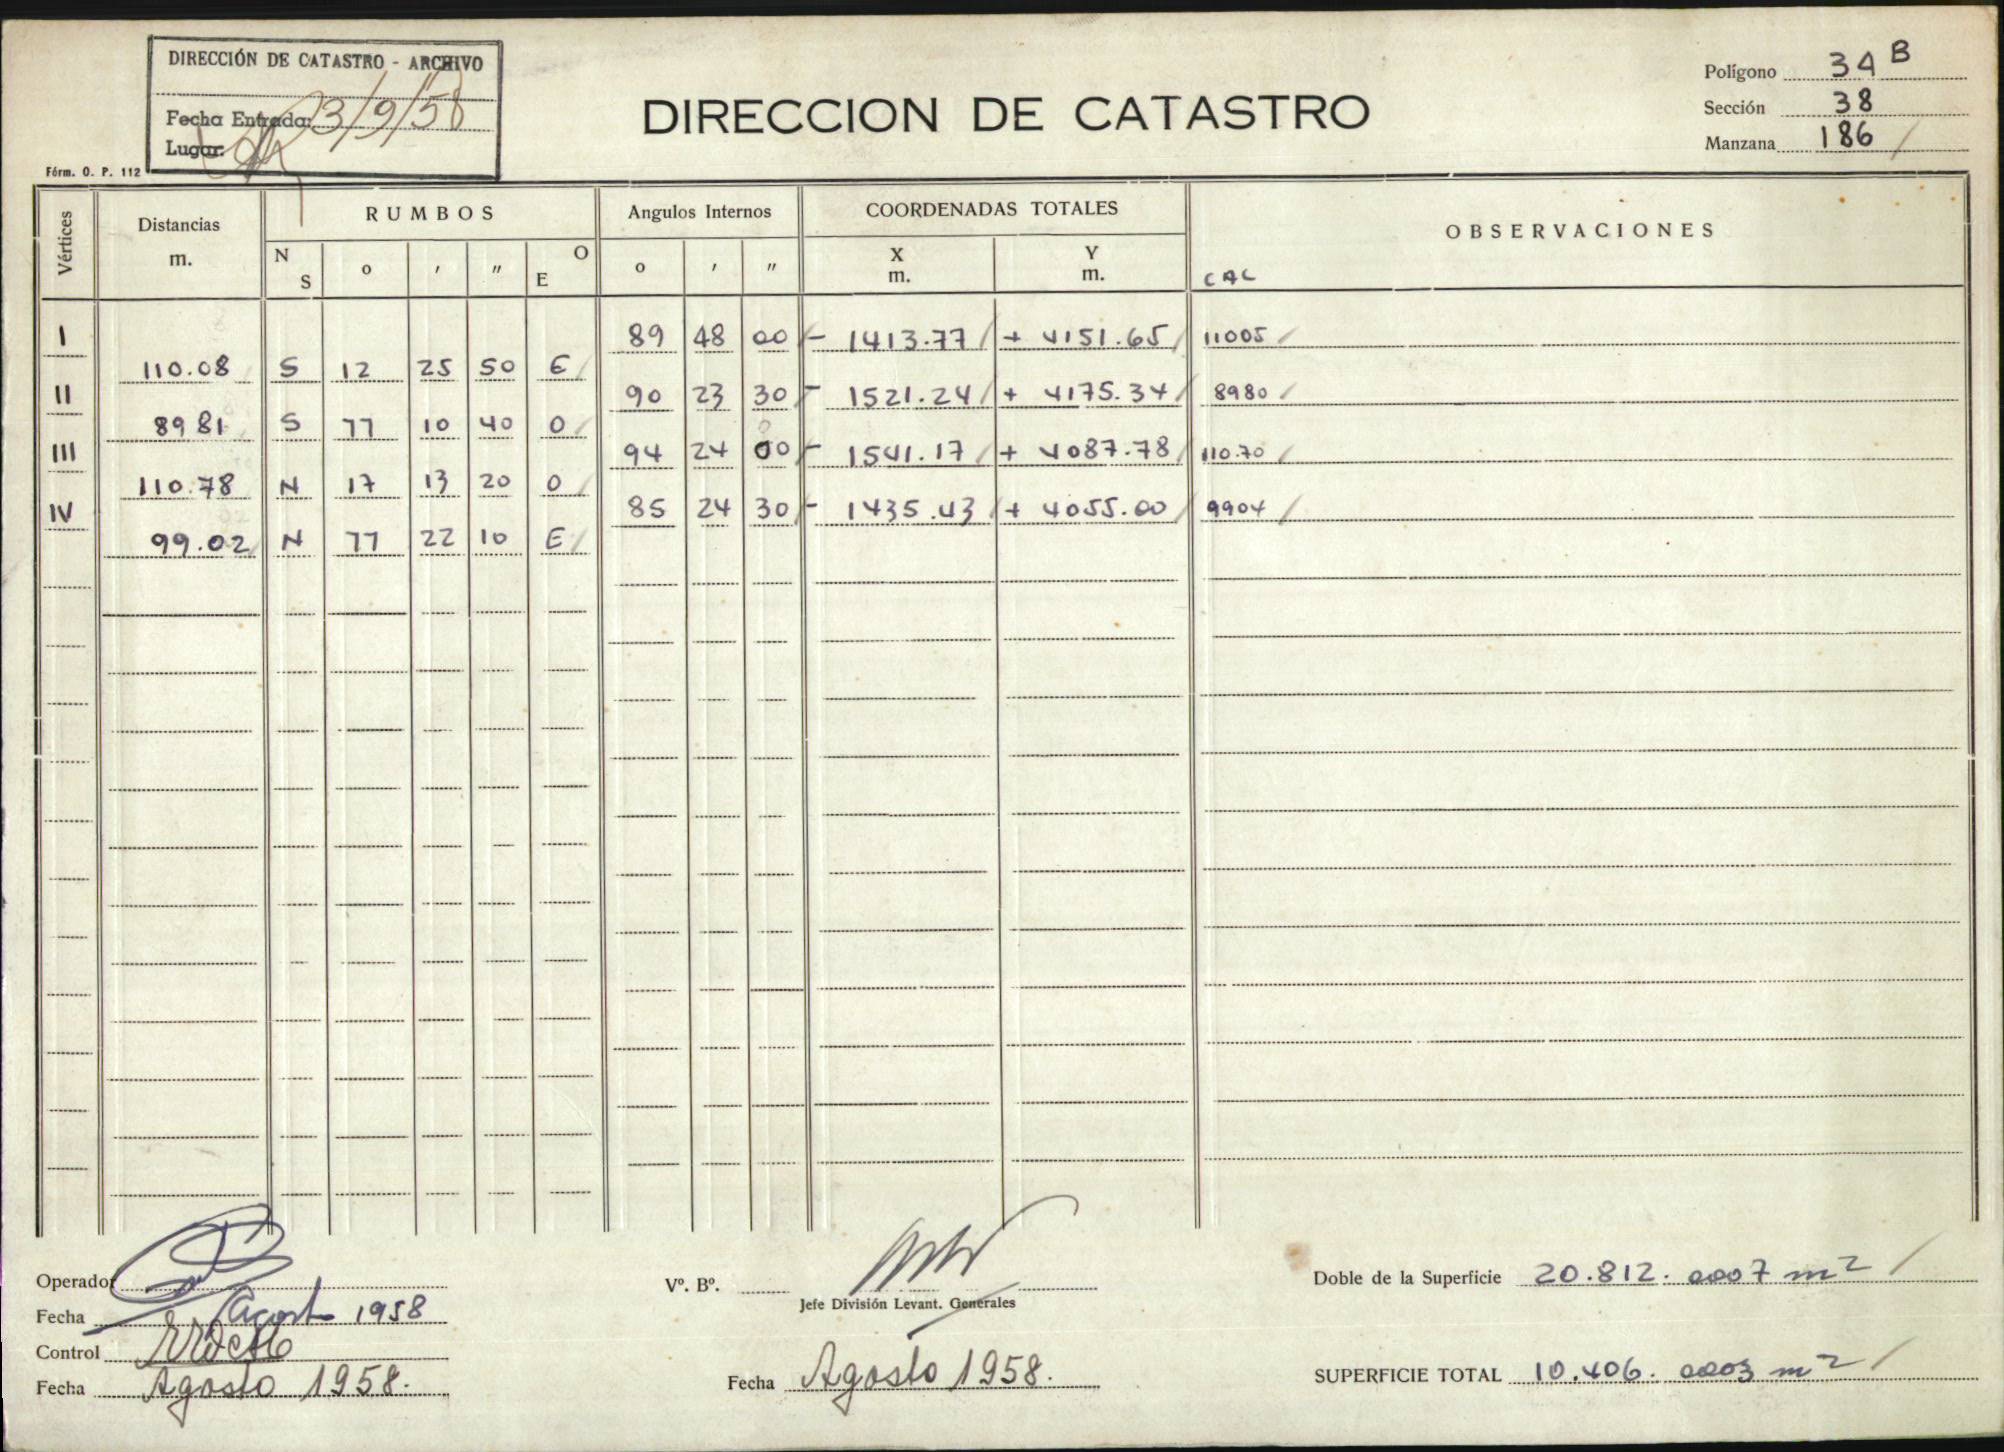 DIRECCIÓN DE CATASTRO - ARCHIVO
Fecha Entrada: 3/9/58
Lugar:
DIRECCION DE CATASTRO
Polígono 34 B
Sección 38
Manzana 186
Fórm. O. P. 112
Vértices Distancias m. RUMBOS Angulos Internos COORDENADAS TOTALES OBSERVACIONES
N S o ' " O E o ' " X m. Y m. CAC
I 89 48 00 - 1413.77 + 4151.65 11005
110.08 S 12 25 50 E
II 90 23 30 - 1521.24 + 4175.34 8980
89 81 S 77 10 40 O
III 94 24 00 - 1541.17 + 4087.78 110.70
110.78 N 17 13 20 O
IV 85 24 30 - 1435.43 + 4055.00 9904
99.02 N 77 22 10 E
Operador
Fecha Agosto 1958
Control
Fecha Agosto 1958.
Vº. Bº.
Jefe División Levant. Generales
Fecha Agosto 1958.
Doble de la Superficie 20.812. 0007 m2
SUPERFICIE TOTAL 10.406. 0003 m2